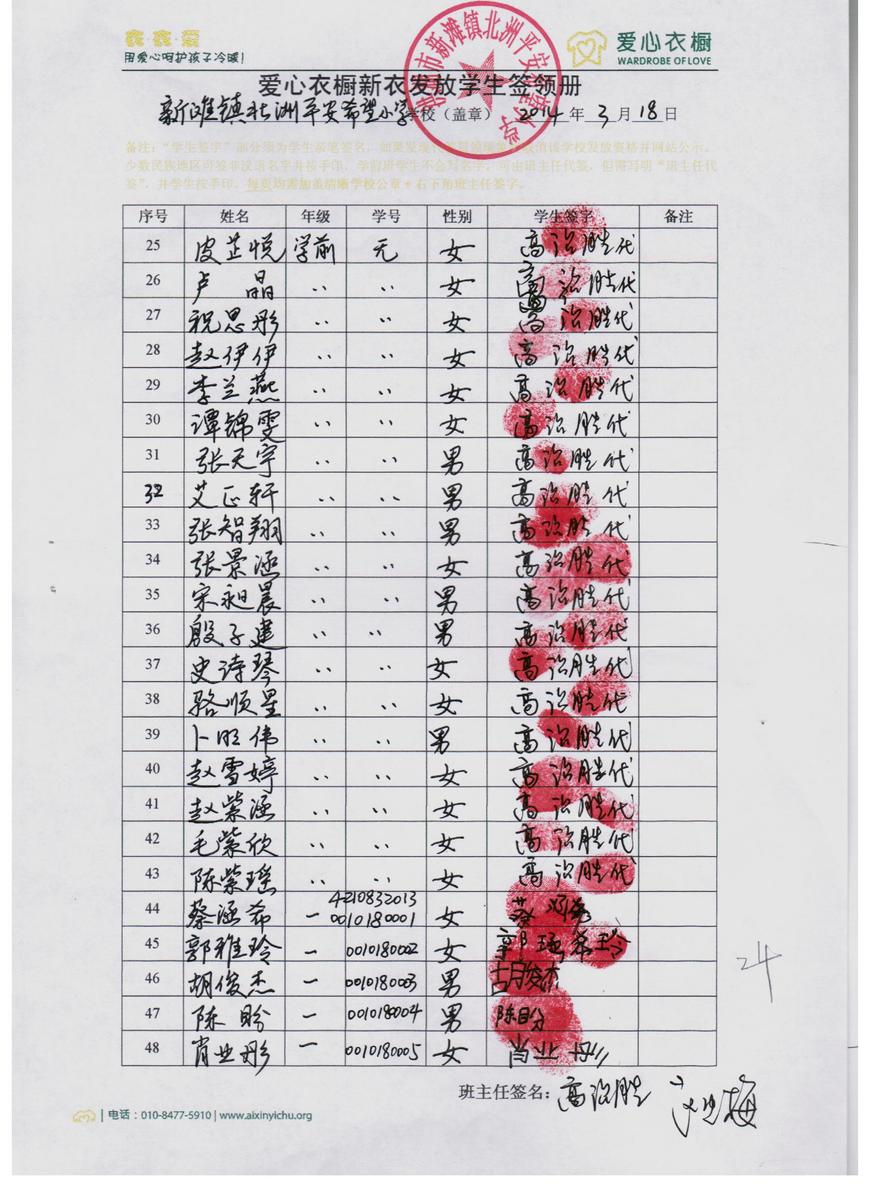 衣·衣·爱
用爱心呵护孩子冷暖!
爱心衣橱
WARDROBE OF LOVE
爱心衣橱新衣发放学生签领册
新滩镇北洲平安希望小学学校(盖章) 2014年3月18日
备注:“学生签字”部分须为学生亲笔签名,如果发现
少数民族地区可签非汉语名字并按手印,学前班学生不会写名字,可由班主任代签,但需写明“班主任代
签”,并学生按手印。每页均需加盖清晰学校公章+右下角班主任签字。
序号 姓名 年级 学号 性别 学生签字 备注
25 皮芷悦 学前 无 女 高治胜代
26 卢晶 ‥ ‥ 女 高治胜代
27 祝思彤 ‥ ‥ 女 高治胜代
28 赵伊伊 ‥ ‥ 女 高治胜代
29 李兰燕 ‥ ‥ 女 高治胜代
30 谭锦雯 ‥ ‥ 女 高治胜代
31 张天宇 ‥ ‥ 男 高治胜代
32 艾正轩 ‥ ‥ 男 高治胜代
33 张智翔 ‥ ‥ 男 高治胜代
34 张景涵 ‥ ‥ 女 高治胜代
35 宋昶晨 ‥ ‥ 男 高治胜代
36 殷子建 ‥ ‥ 男 高治胜代
37 史诗琴 ‥ ‥ 女 高治胜代
38 骆顺星 ‥ ‥ 女 高治胜代
39 卜明伟 ‥ ‥ 男 高治胜代
40 赵雪婷 ‥ ‥ 女 高治胜代
41 赵紫涵 ‥ ‥ 女 高治胜代
42 毛紫欣 ‥ ‥ 女 高治胜代
43 陈紫瑶 ‥ ‥ 女 高治胜代
44 蔡涵希 一 4210832013 0010180001 女 蔡
45 郭雅玲 一 0010180002 女 郭 玲
46 胡俊杰 一 0010180003 男 胡俊杰
47 陈盼 一 0010180004 男 陈盼
48 肖业彤 一 0010180005 女 肖业彤
24
班主任签名:高治胜
电话:010-8477-5910 | www.aixinyichu.org